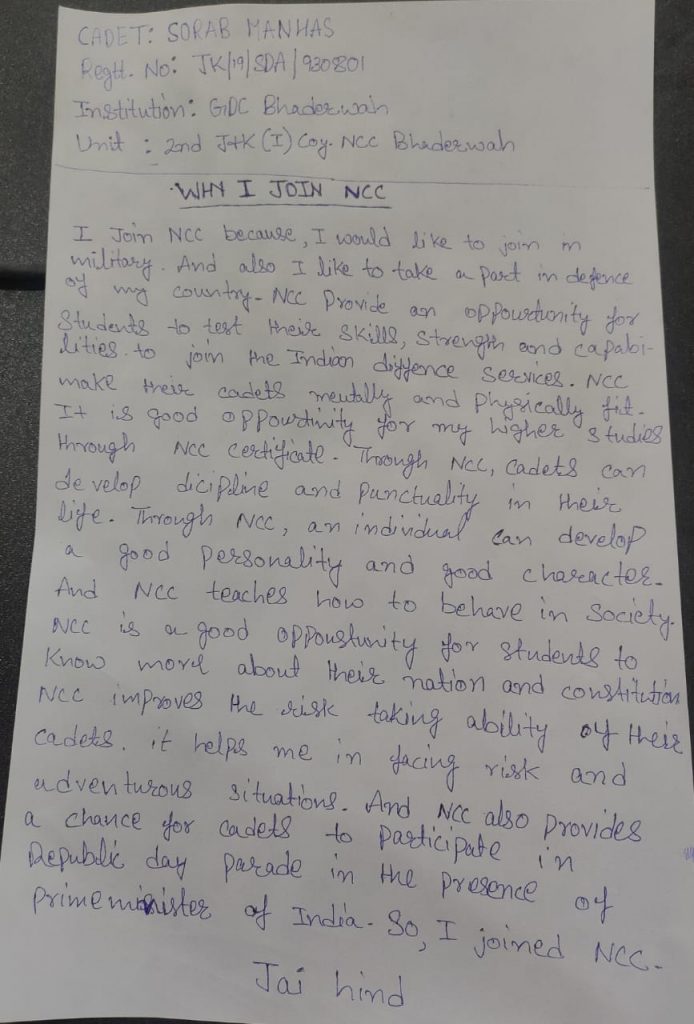 CADET: SORAB MANHAS
Regtt. No: JK/19/SDA/930801
Institution: GDC Bhaderwah
Unit : 2nd J+K (I) Coy. NCC Bhaderwah
WHY I JOIN NCC
I Join NCC because, I would like to join in
military. And also I like to take a part in defence
of my country- NCC Provide an oppourtunity for
Students to test their Skills, Strength and capabi-
lities. to join the Indian diffence Services. NCC
make their cadets mentally and Physically fit.
It is good oppourtinity for my higher studies
through NCC certificate. Through NCC, cadets can
develop dicipline and Punctuality in their
life. Through NCC, an individual can develop
a good Personality and good character.
And NCC teaches how to behave in Society.
NCC is a good oppourtunity for students to
Know more about their nation and constitution
NCC improves the risk taking ability of their
cadets. it helps me in facing risk and
adventurous situations. And NCC also Provides
a chance for cadets to Participate in
Republic day Parade in the Presence of
Primeminister of India- So, I joined NCC-
Jai hind